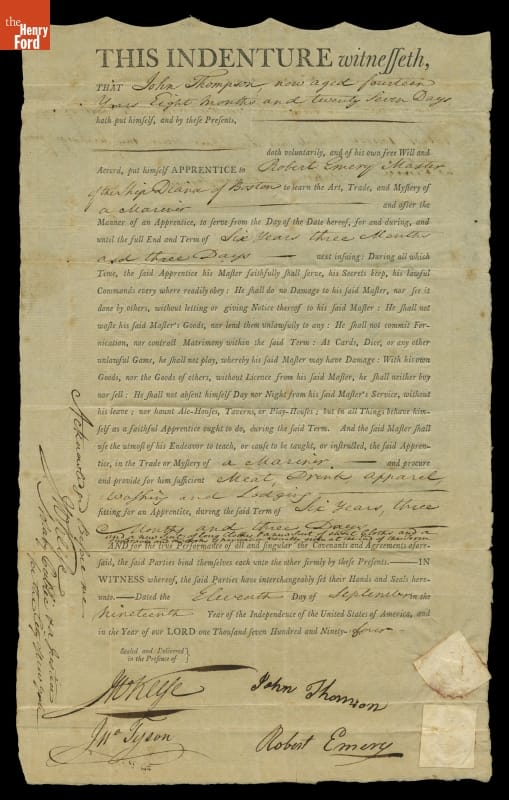 the
Henry
Ford
THIS INDENTURE witnesseth,
THAT John Thompson, now aged fourteen
Years Eight months and twenty Seven Days
hath put himself, and by these Presents,
doth voluntarily, and of his own free Will and
Accord, put himself APPRENTICE to Robert Emery Master
of the Ship Diana of Boston to learn the Art, Trade, and Mystery of
a Mariner and after the
Manner of an Apprentice, to serve from the Day of the Date hereof, for and during, and
until the full End and Term of Six Years three Months
and three Days next insuing: During all which
Time, the said Apprentice his Master faithfully shall serve, his Secrets keep, his lawful
Commands every where readily obey: He shall do no Damage to his said Master, nor see it
done by others, without letting or giving Notice thereof to his said Master: He shall not
waste his said Master's Goods, nor lend them unlawfully to any: He shall not commit For-
nication, nor contract Matrimony within the said Term: At Cards, Dice, or any other
unlawful Game, he shall not play, whereby his said Master may have Damage: With his own
Goods, nor the Goods of others, without Licence from his said Master, he shall neither buy
nor sell: He shall not absent himself Day nor Night from his said Master's Service, without
his leave; nor haunt Ale-Houses, Taverns, or Play-Houses; but in all Things behave him-
self as a faithful Apprentice ought to do, during the said Term. And the said Master shall
use the utmost of his Endeavor to teach, or cause to be taught, or instructed, the said Appren-
tice, in the Trade or Mystery of a Mariner and procure
and provide for him sufficient Meat, Drink apparel,
Washing and Lodging
fitting for an Apprentice, during the said Term of Six Years, three
Months and three Days
and a new Suit of
AND for the true Performance of all and singular the Covenants and Agreements afore-
said, the said Parties bind themselves each unto the other firmly by these Presents. IN
WITNESS whereof, the said Parties have interchangeably set their Hands and Seals here-
unto. Dated the Eleventh Day of September in the
Nineteenth Year of the Independence of the United States of America, and
in the Year of our LORD one Thousand seven Hundred and Ninety-four
Sealed and Delivered
in the Presence of
John Thomson
Jno Tyson
Robert Emery
Acknowledged before me